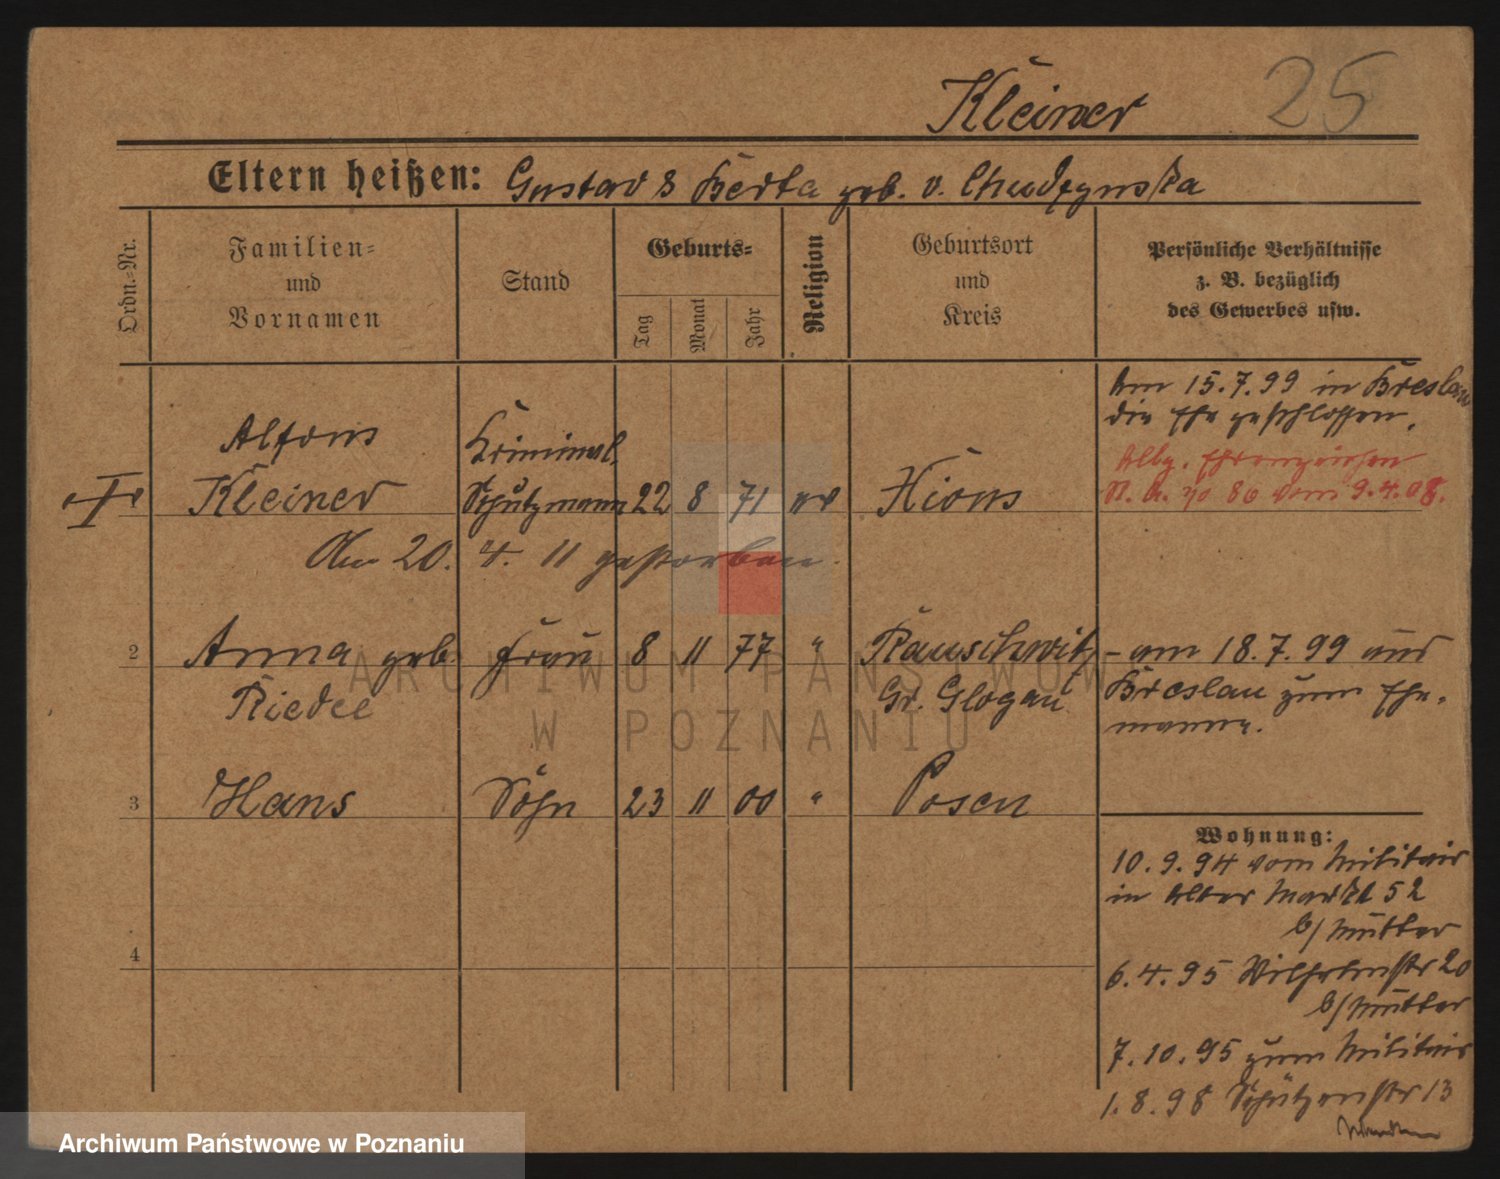 Kleiner 25
Eltern heißen: Gustav & Berta geb. v. Chudzynska
Ordn.=Nr.
Familien= und Vornamen
Stand
Geburts=
Tag
Monat
Jahr
Religion
Geburtsort und Kreis
Persönliche Verhältnisse
z. B. bezüglich
des Gewerbes usw.
Am 15.7.99 in Breslau
die Ehe geschlossen.
Allg. Ehrenzeichen
vom 9.4.08.
Alfons Kriminal
Kleiner Schutzmann 22 8 71 ev Xions
Am 20. 4. 11 gestorben.
2 Anna geb. Frau 8 11 77 " Rauschwitz
Riedel Gr. Glogau
- am 18.7.99 aus
Breslau zum Ehe-
manne.
3 Hans Sohn 23 11 00 " Posen
4
Wohnung:
10.9.94 vom Militair
in Alter Markt 52
b/ Mutter
6.4.95 Wilhelmstr 20
b/ Mutter
7.10.95 zum Militair
1.8.98 Schützenstr 13
ARCHIWUM PAŃSTWOWE
W POZNANIU
Archiwum Państwowe w Poznaniu